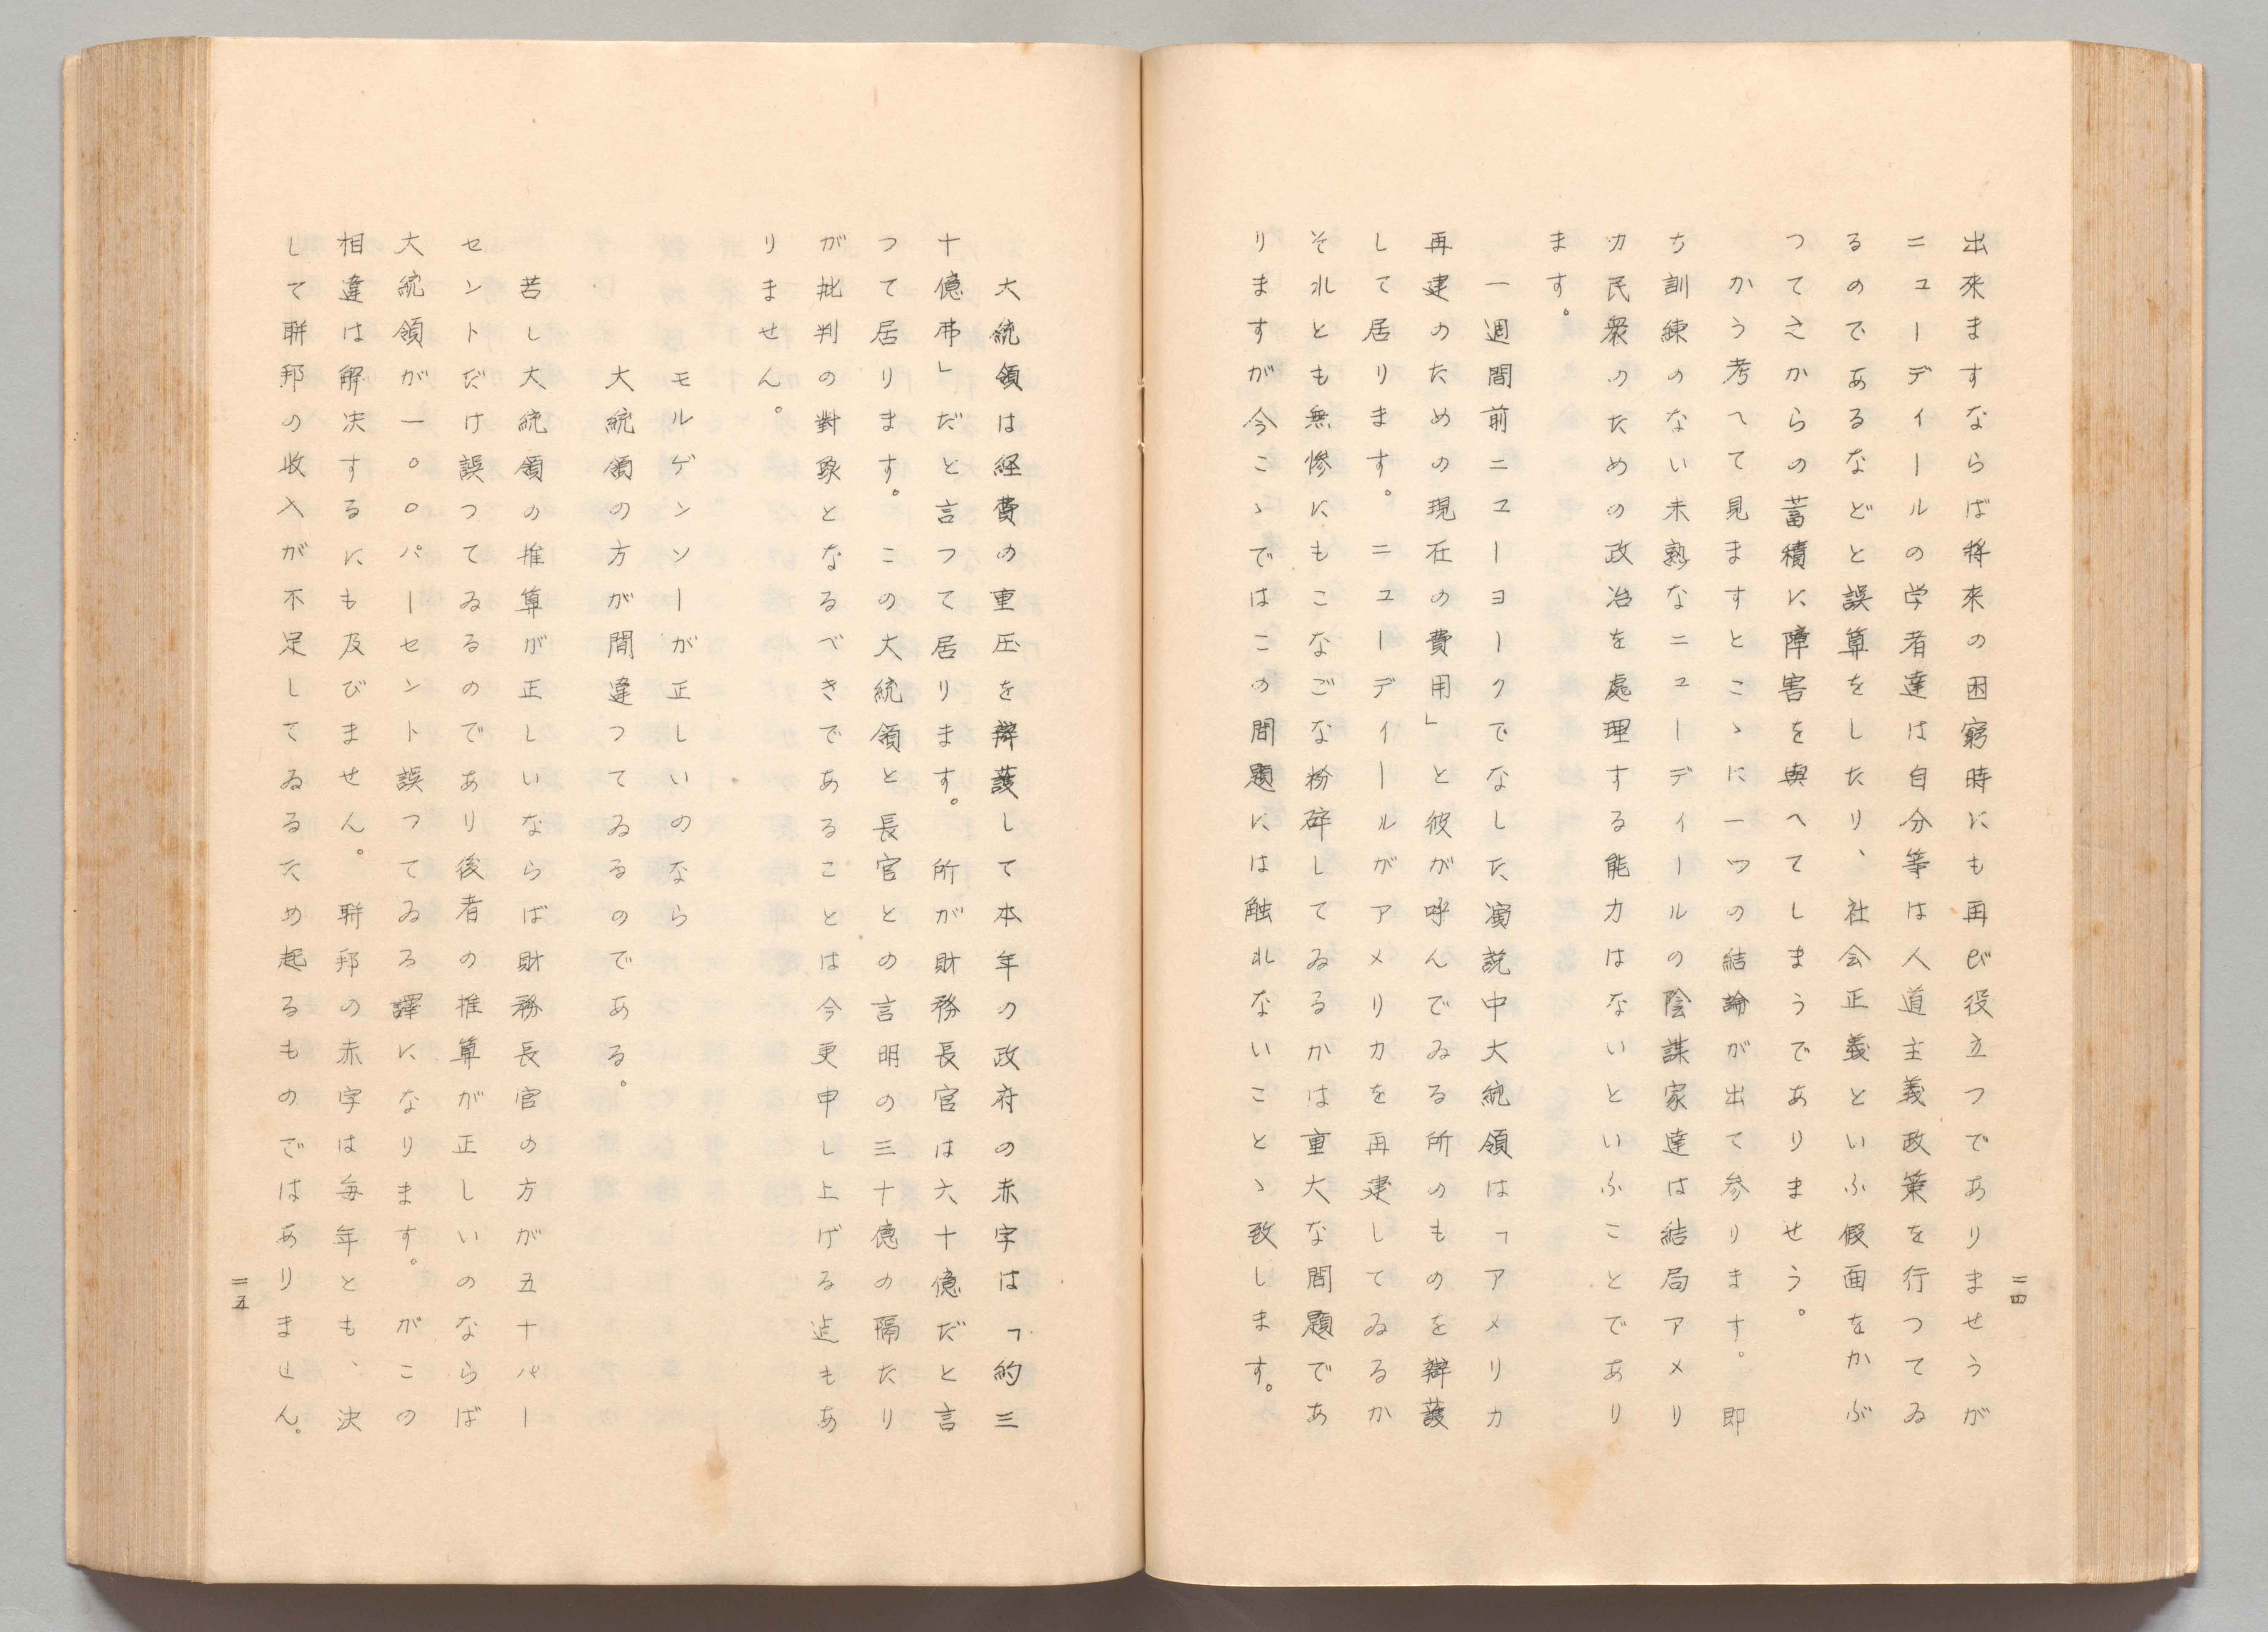 出來ますならば将來の困窮時にも再び役立つでありませうが
ニューディールの学者達は自分等は人道主義政策を行つてゐ
るのであるなどと誤算をしたり、社会正義といふ假面をかぶ
つて之からの蓄積に障害を與へてしまうでありませう。
かう考へて見ますとこゝに一ツの結論が出て参ります。即
ち訓練のない未熟なニューディールの陰謀家達は結局アメリ
カ民衆のための政治を處理する能力はないといふことであり
ます。
一週間前ニューヨークでなした演説中大統領は「アメリカ
再建のための現在の費用」と彼が呼んでゐる所のものを辯護
して居ります。ニューディールがアメリカを再建してゐるか
それとも無惨にもこなごなに粉碎してゐるかは重大な問題であ
りますが今こゝではこの問題には触れないことゝ致します。
二四
大統領は経費の重圧を辯護して本年の政府の赤字は「約三
十億弗」だと言つて居ります。所が財務長官は六十億だと言
つて居ります。この大統領と長官との言明の三十億の隔たり
が批判の對象となるべきであることは今更申し上げる迄もあ
りません。
モルゲンソーが正しいのなら
大統領の方が間違つてゐるのである。
苦し大統領の推算が正しいならば財務長官の方が五十パー
セントだけ誤つてゐるのであり後者の推算が正しいのならば
大統領が一〇〇パーセント誤つてゐる譯になります。がこの
相違は解決するにも及びません。聨邦の赤字は毎年とも、決
して聨邦の收入が不足してゐるため起るものではありません。
二五